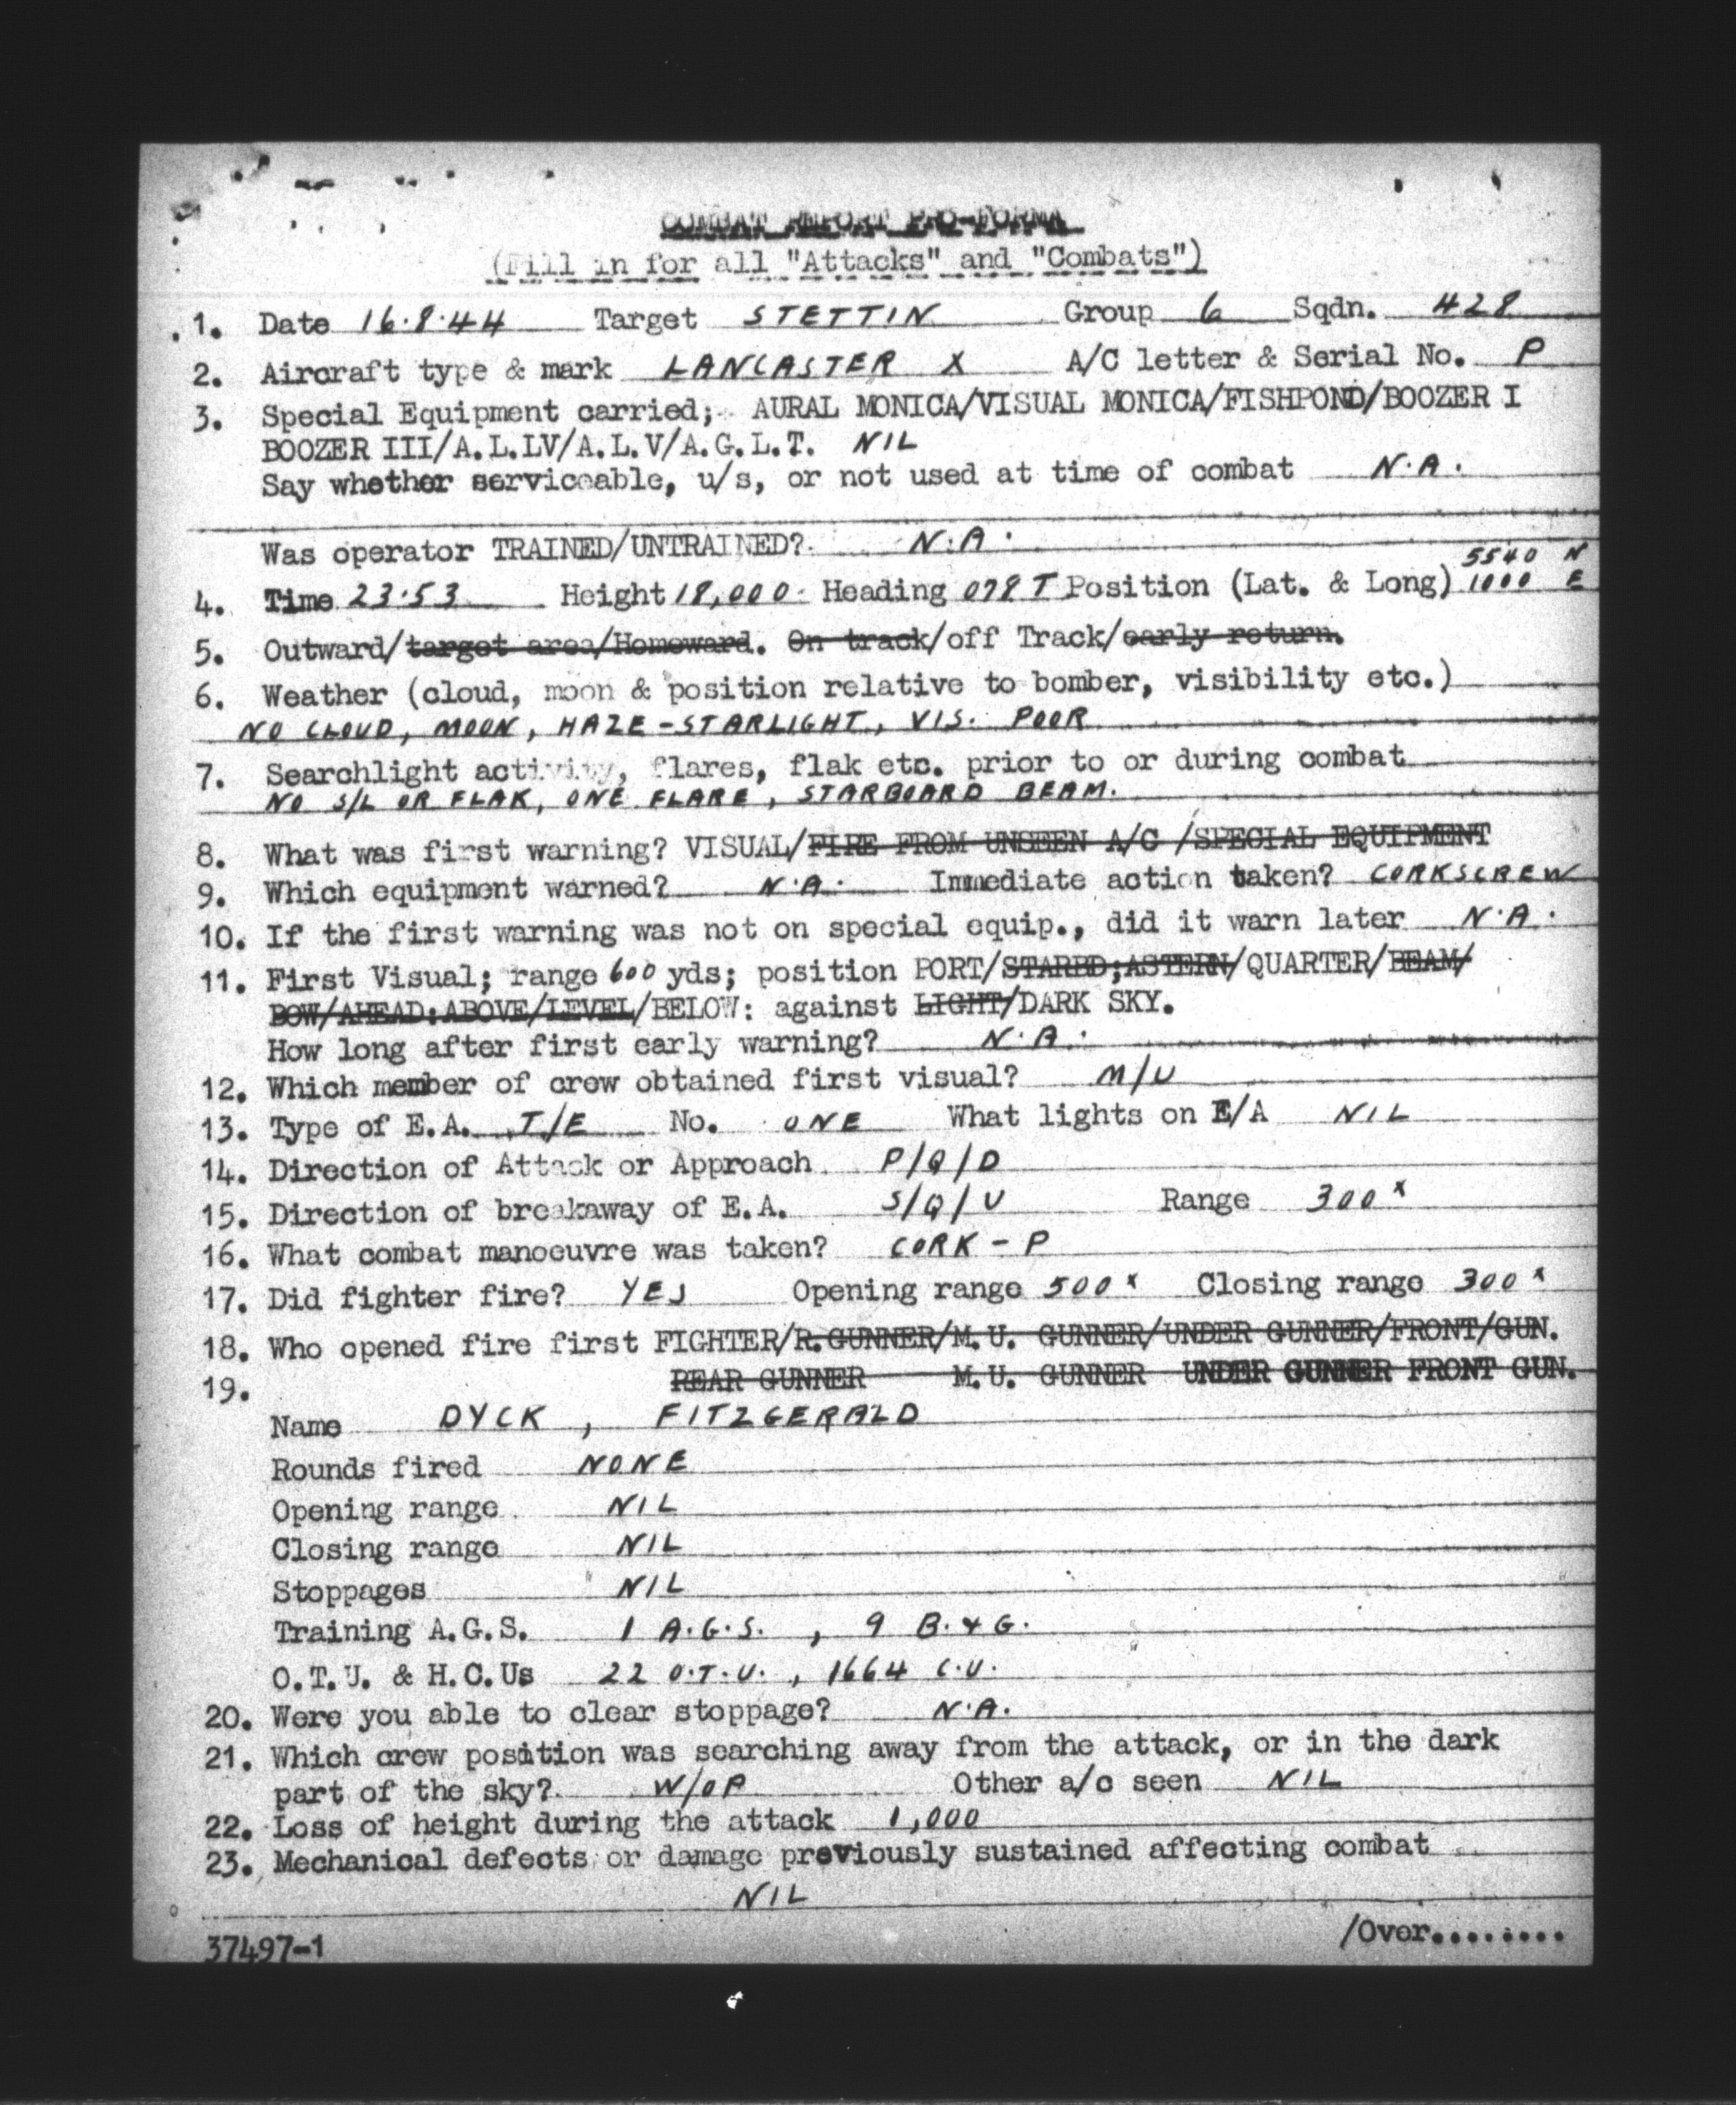 COMBAT REPORT PRO-FORMA
(Fill in for all "Attacks" and "Combats")
1. Date 16.8.44 Target STETTIN Group 6 Sqdn. 428
2. Aircraft type & mark LANCASTER X A/C letter & Serial No. P
3. Special Equipment carried; AURAL MONICA/VISUAL MONICA/FISHPOND/BOOZER I
BOOZER III/A.L.LV/A.L.V/A.G.L.T. NIL
Say whether serviceable, u/s, or not used at time of combat N.A.
Was operator TRAINED/UNTRAINED? N.A.
5540 N
4. Time 23.53 Height 18,000 Heading 078 T Position (Lat. & Long) 1000 E
5. Outward/target area/Homeward. On track/off Track/early return.
6. Weather (cloud, moon & position relative to bomber, visibility etc.)
NO CLOUD, MOON, HAZE-STARLIGHT, VIS. POOR
7. Searchlight activity, flares, flak etc. prior to or during combat
NO S/L OR FLAK, ONE FLARE, STARBOARD BEAM.
8. What was first warning? VISUAL/FIRE FROM UNSEEN A/C /SPECIAL EQUIPMENT
9. Which equipment warned? N.A. Immediate action taken? CORKSCREW
10. If the first warning was not on special equip., did it warn later N.A.
11. First Visual; range 600 yds; position PORT/STARBD;ASTERN/QUARTER/BEAM/
BOW/AHEAD:ABOVE/LEVEL/BELOW: against LIGHT/DARK SKY.
How long after first early warning? N.A.
12. Which member of crew obtained first visual? M/U
13. Type of E.A. T/E No. ONE What lights on E/A NIL
14. Direction of Attack or Approach P/Q/D
15. Direction of breakaway of E.A. S/Q/U Range 300 x
16. What combat manoeuvre was taken? CORK - P
17. Did fighter fire? YES Opening range 500 x Closing range 300 x
18. Who opened fire first FIGHTER/R.GUNNER/M.U. GUNNER/UNDER GUNNER/FRONT/GUN.
19. REAR GUNNER M.U. GUNNER UNDER GUNNER FRONT GUN.
Name DYCK , FITZGERALD
Rounds fired NONE
Opening range NIL
Closing range NIL
Stoppages NIL
Training A.G.S. 1 A.G.S. , 9 B.&G.
O.T.U. & H.C.Us 22 O.T.U. , 1664 C.U.
20. Were you able to clear stoppage? N.A.
21. Which crew position was searching away from the attack, or in the dark
part of the sky? W/OP Other a/c seen NIL
22. Loss of height during the attack 1,000
23. Mechanical defects or damage previously sustained affecting combat
NIL
37497-1 /Over........